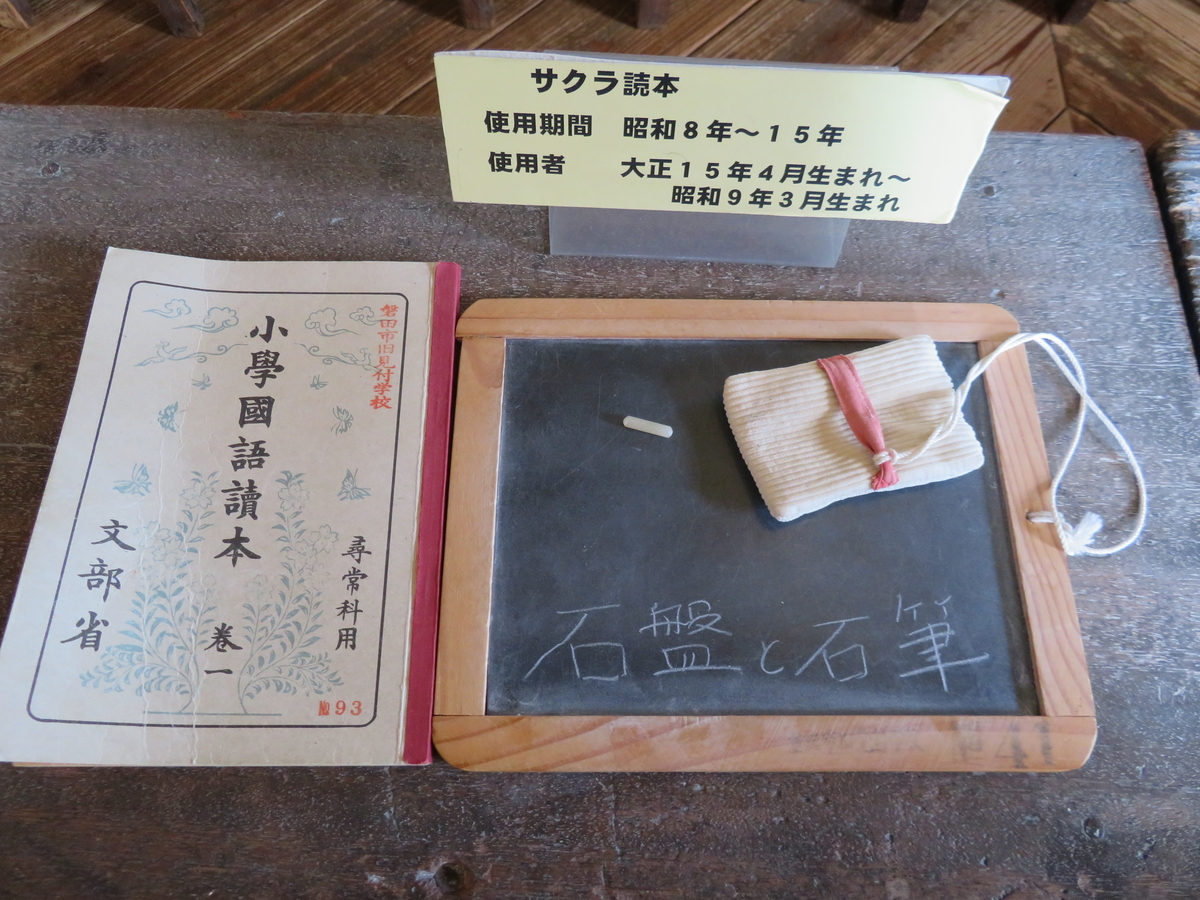 サクラ読本
使用期間 昭和８年～１５年
使用者 大正１５年４月生まれ～
昭和９年３月生まれ
磐田市旧見付学校
尋常科用
小學國語讀本 卷一
文部省
№93
石盤と石筆